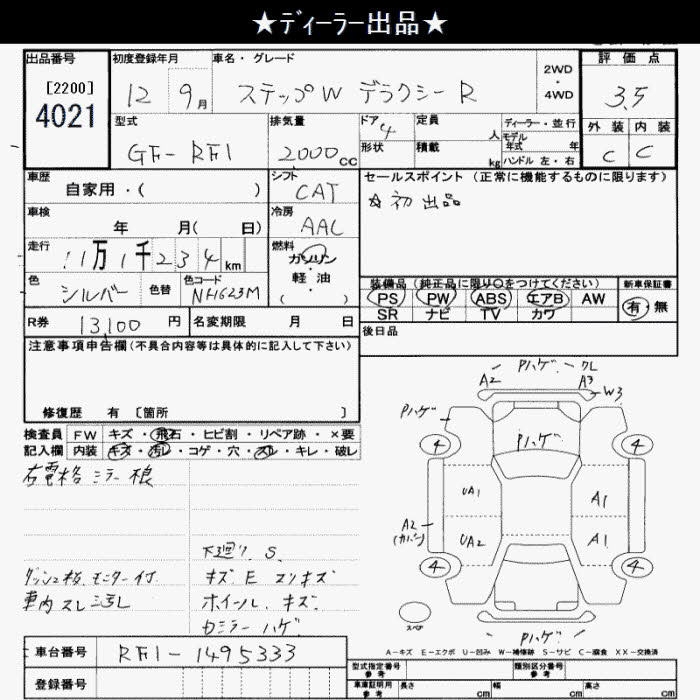 ★ディーラー出品★
出品番号 初度登録年月 車名・グレード 2WD・4WD 評価点
[2200] 4021
12 9月 ステップW デラクシー R 3.5
型式 排気量 ドア 4 定員 人 ディーラー・並行 外装 内装
GF-RF1 2000cc 形状 積載 kg モデル年式 年 C C
ハンドル 左・右
車歴 シフト セールスポイント (正常に機能するものに限ります)
自家用・( ) CAT ☆初出品
車検 冷房
年 月( 日) AAC
走行 燃料
11万1千234km ガソリン・軽油
( )
色 色替 色コード
シルバー NH623M
装備品 (純正品に限り○をつけてください) 新車保証書
PS PW ABS エアB AW 有・無
SR ナビ TV カワ
R券 13,100円 名変期限 月 日 後日品
注意事項申告欄(不具合内容等は具体的に記入して下さい)
修復歴 有 [箇所 ]
検査員 FW キズ・飛石・ヒビ割・リペア跡・×要
記入欄 内装 キズ・汚レ・コゲ・穴・スレ・キレ・破レ
右電格ミラー根
下廻り S
ダッシュ板 モニター付 キズ E スリキズ
車内スレ汚レ ホイール キズ
Dミラー ハゲ
Pハゲ クレ
A2 A3 W3
Pハゲ
4 Pハゲ 4
UA1 A1
A2 (カバー) UA2 A1
4 4
スペア Pハゲ
A-キズ E-エクボ U-凹み W-補修跡 S-サビ C-腐食 XX-交換済
車台番号 RF1-1495333
型式指定番号 参考 類別区分番号 参考
登録番号 車庫証明用 参考 長さ cm 幅 cm 高さ cm